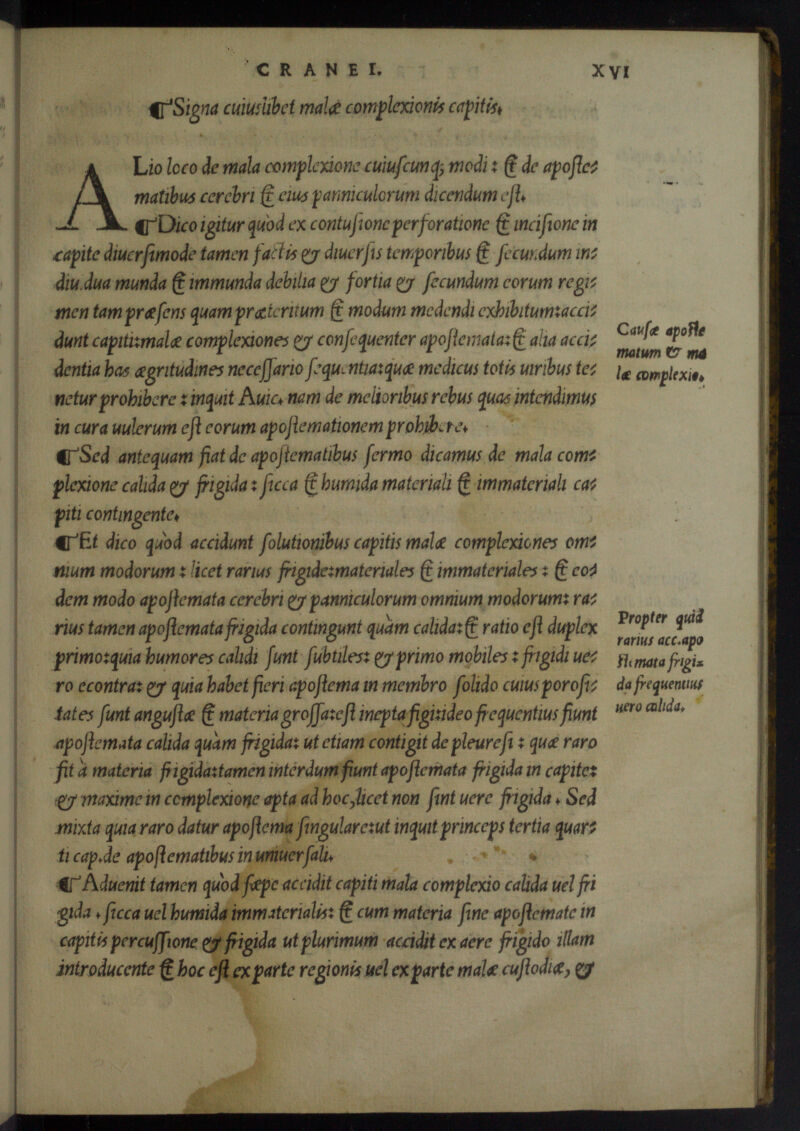 CRANEI. XVI
¶Signa cuiuslibet malæ complexionis capitis.
ALio loco de mala complexione cuiuscunq; modi: & de aposte=
matibus cerebri & eius panniculorum dicendum est.
¶Dico igitur quòd ex contusione perforatione & incisione in
capite diuersimode tamen factis & diuersis temporibus & secundum in=
diu.dua munda & immunda debilia & fortia & secundum eorum regi=
men tam præsens quam præteritum & modum medendi exhibitum:acci=
dunt capiti:malæ complexiones & consequenter apostemata:& alia acci=
dentia has ægritudines necessario sequentia:quæ medicus totis uiribus te=
netur prohibere: inquit Auic. nam de melioribus rebus quas intendimus
in cura uulerum est eorum apostemationem prohibere.
¶Sed antequam fiat de apostematibus sermo dicamus de mala com=
plexione calida & frigida: sicca & humida materiali & immateriali ca=
piti contingente.
¶Et dico quòd accidunt solutionibus capitis malæ complexiones om=
nium modorum: licet rarius frigide:materiales & immateriales: & eo=
dem modo apostemata cerebri & panniculorum omnium modorum: ra=
rius tamen apostemata frigida contingunt quàm calida:& ratio est duplex
primo:quia humores calidi sunt subtiles: & primo mobiles: frigidi ue=
ro econtra: & quia habet fieri apostema in membro solido cuius porosi=
tates sunt angustæ & materia grossa:est inepta figi:ideo frequentius fiunt
apostemata calida quàm frigida: ut etiam contigit de pleuresi: quæ raro
fit à materia frigida:tamen interdum fiunt apostemata frigida in capite:
& maxime in complexione apta ad hoc,licet non sint uere frigida. Sed
mixta quia raro datur apostema singulare:ut inquit princeps tertia quar=
ti cap.de apostematibus in uniuersali.
¶Aduenit tamen quòd sæpe accidit capiti mala complexio calida uel fri
gida. sicca uel humida immaterialis: & cum materia sine apostemate in
capitis percussione & frigida ut plurimum accidit ex aere frigido illam
introducente & hoc est ex parte regionis uel ex parte malæ custodiæ, &
Causæ aposte
matum & ma
læ complexio.
Propter quid
rarius acc.apo
stemata frigi=
da frequentius
uero calida.